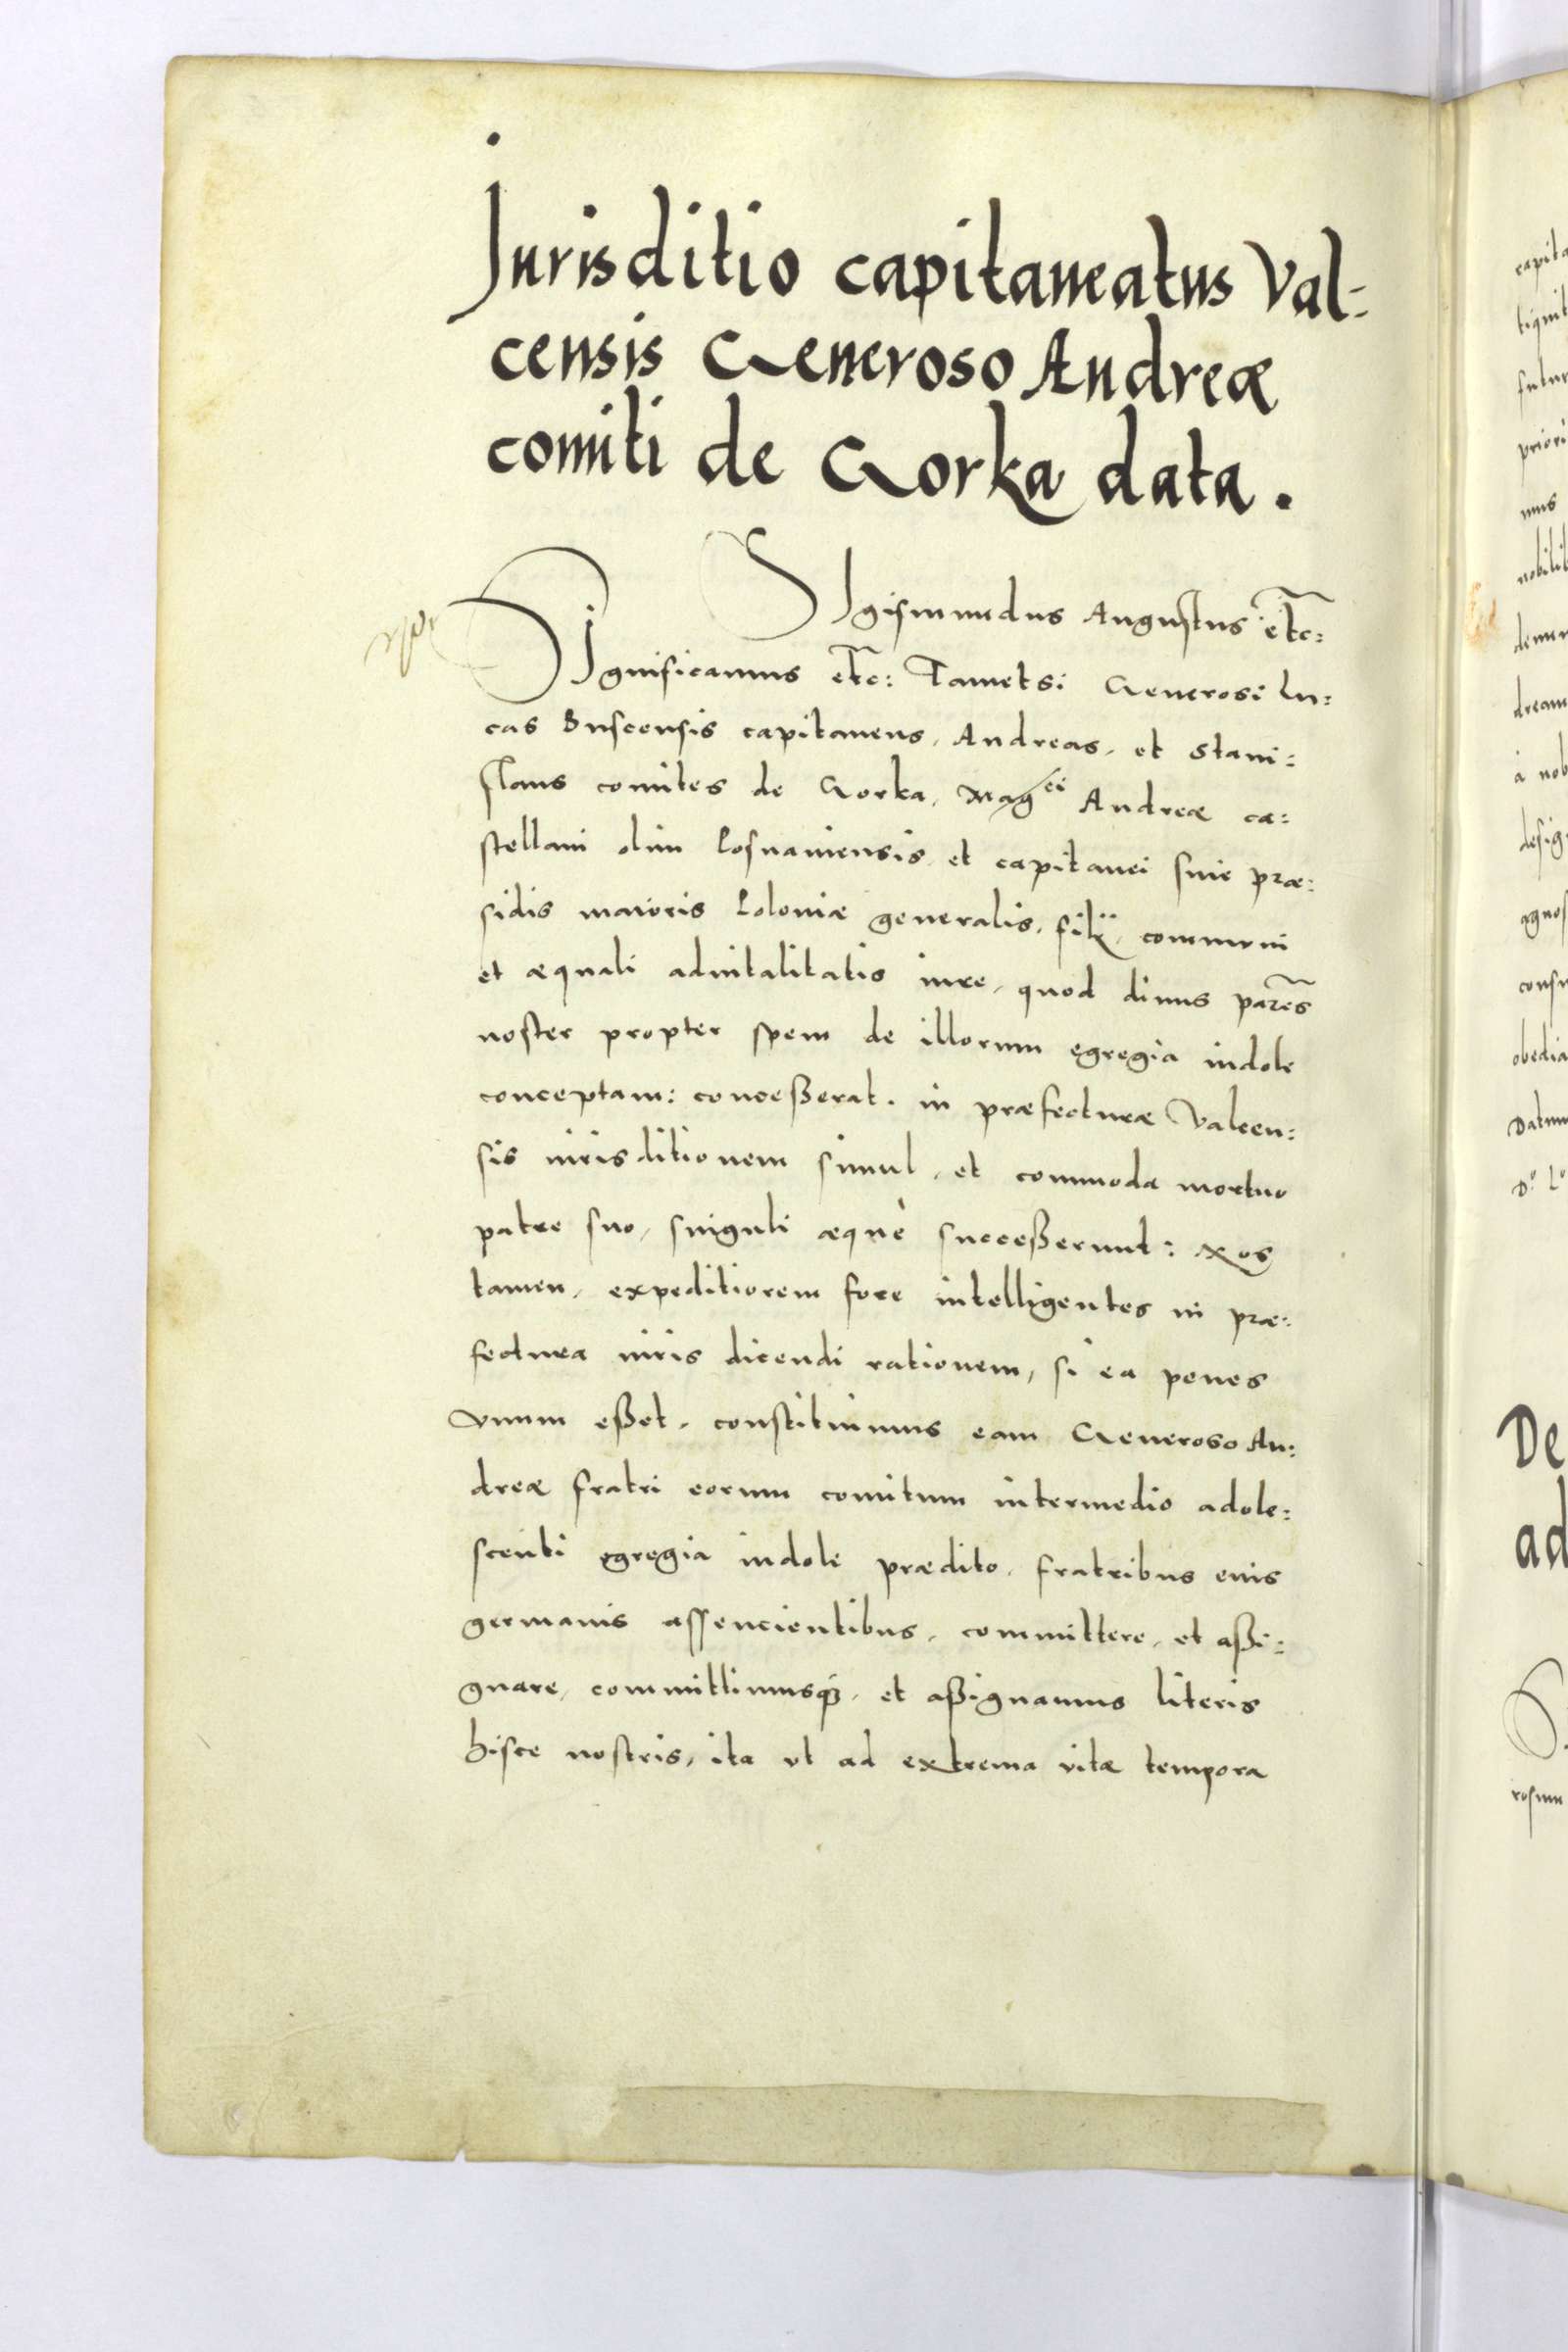 Jurisditio capitaneatus Val-
censis Generoso Andreæ
comiti de Gorka data.
SIgismundus Augustus etc:
SIgnificamus etc: Tametsi Generosi Lu:
cas Buscensis capitaneus, Andreas, et Stani:
slaus comites de Gorka, Mag^ci Andreæ ca:
stellani olim Posnaniensis et capitanei siue præ:
sidis maioris Poloniæ generalis, filij, communi
et æquali aduitalitatis iure, quod diuus parẽs
noster propter spem de illorum egregia indole
conceptam: conceßerat. in præfecturæ Valcen:
sis iurisditionem simul, et commoda mortuo
patre suo, singuli æquè succeßerunt: Nos
tamen, expeditiorem fore intelligentes in præ:
fectura iuris dicendi rationem, si ea penes
vnum eßet, constituimus eam Generoso An:
dreæ fratri eorum comitum intermedio adole:
scenti egregia indole prædito, fratribus eius
germanis assencientibus, committere, et aßi:
gnare, committimusq;, et aßignamus literis
hisce nostris, ita vt ad extrema vitæ tempora
capita
tiquit
futur
priori
mus
nobilit
demun
dream
à nob
desig
agnos
consu
obedia
Datum
D: Lo
De
ad
S
rosum